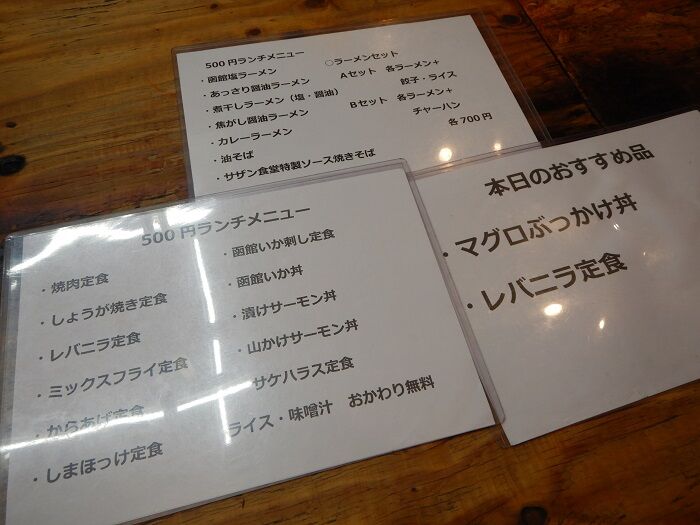 500円ランチメニュー
・函館塩ラーメン
・あっさり醤油ラーメン
・煮干しラーメン（塩・醤油）
・焦がし醤油ラーメン
・カレーラーメン
・油そば
・サザン食堂特製ソース焼きそば
○ラーメンセット
Aセット 各ラーメン+
餃子・ライス
Bセット 各ラーメン+
チャーハン
各700円
500円ランチメニュー
・焼肉定食
・しょうが焼き定食
・レバニラ定食
・ミックスフライ定食
・からあげ定食
・しまほっけ定食
・函館いか刺し定食
・函館いか丼
・漬けサーモン丼
・山かけサーモン丼
サケハラス定食
ライス・味噌汁 おかわり無料
本日のおすすめ品
・マグロぶっかけ丼
・レバニラ定食